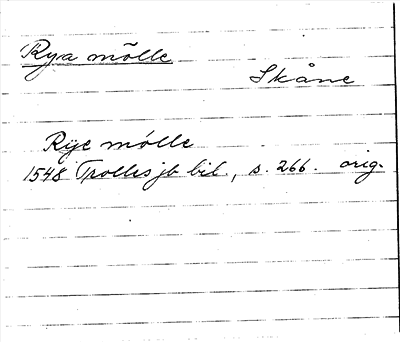 Rya mölle
Skåne
Rije mölle
1548 Trolles jb bil., s. 266. orig.